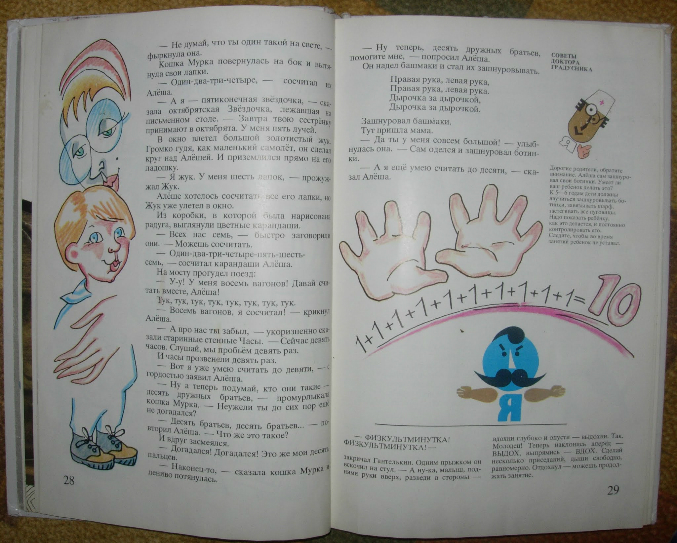 — Не думай, что ты один такой на свете, —
фыркнула она.
Кошка Мурка повернулась на бок и вытя-
нула свои лапки.
— Один-два-три-четыре, — сосчитал их
Алёша.
— А я — пятиконечная звёздочка, — ска-
зала октябрятская Звёздочка, лежавшая на
письменном столе. — Завтра твою сестрёнку
принимают в октябрята. У меня пять лучей.
В окно влетел большой золотистый жук.
Громко гудя, как маленький самолёт, он сделал
круг над Алёшей. И приземлился прямо на его
ладошку.
— Я Жук. У меня шесть лапок, — прожуж-
жал Жук.
Алёше хотелось сосчитать все его лапки, но
Жук уже улетел в окно.
Из коробки, в которой была нарисована
радуга, выглянули цветные карандаши.
— Всех нас семь, — быстро заговорили
они. — Можешь сосчитать.
— Один-два-три-четыре-пять-шесть-
семь, — сосчитал карандаши Алёша.
На мосту прогудел поезд:
— У-у! У меня восемь вагонов! Давай счи-
тать вместе, Алёша!
Тук, тук, тук, тук, тук, тук, тук, тук.
— Восемь вагонов, я сосчитал! — крикнул
Алёша.
— А про нас ты забыл, — укоризненно ска-
зали старинные стенные Часы. — Сейчас девять
часов. Слушай, мы пробьём девять раз.
И часы прозвенели девять раз.
— Вот я уже умею считать до девяти, — с
гордостью заявил Алёша.
— Ну а теперь подумай, кто они такие —
десять дружных братьев, — промурлыкала
кошка Мурка. — Неужели ты до сих пор ещё
не догадался?
— Десять братьев, десять братьев... — по-
вторил Алёша. — Что же это такое?
И вдруг засмеялся.
— Догадался! Догадался! Это же мои десять
пальцев.
— Наконец-то, — сказала кошка Мурка и
лениво потянулась.
28
— Ну теперь, десять дружных братьев,
помогите мне, — попросил Алёша.
Он надел башмаки и стал их зашнуровывать.
Правая рука, левая рука,
Правая рука, левая рука.
Дырочка за дырочкой,
Дырочка за дырочкой.
Зашнуровал башмаки.
Тут пришла мама.
— Да ты у меня совсем большой! — улыб-
нулась она. — Сам оделся и зашнуровал ботин-
ки.
— А я ещё умею считать до десяти, — ска-
зал Алёша.
СОВЕТЫ
ДОКТОРА
ГРАДУСНИКА
Дорогие родители, обратите
внимание: Алёша сам зашнуро-
вал свои ботинки. Умеет ли
ваш ребёнок делать это?
К 5—6 годам дети должны
научиться зашнуровывать бо-
тинки,
1+1+1+1+1+1+1+1+1+1=10
Я
— ФИЗКУЛЬТМИНУТКА!
ФИЗКУЛЬТМИНУТКА! —
закричал Гантелькин. Одним прыжком он
вскочил на стул. — А ну-ка, малыш, под-
ними руки вверх, разведи в стороны —
вдохни глубоко и опусти — выдохни. Так.
Молодец! Теперь наклонись вперёд —
ВЫДОХ, выпрямись — ВДОХ. Сделай
несколько приседаний, дыши свободно,
равномерно. Отдохнул — можешь продол-
жать занятие.
29